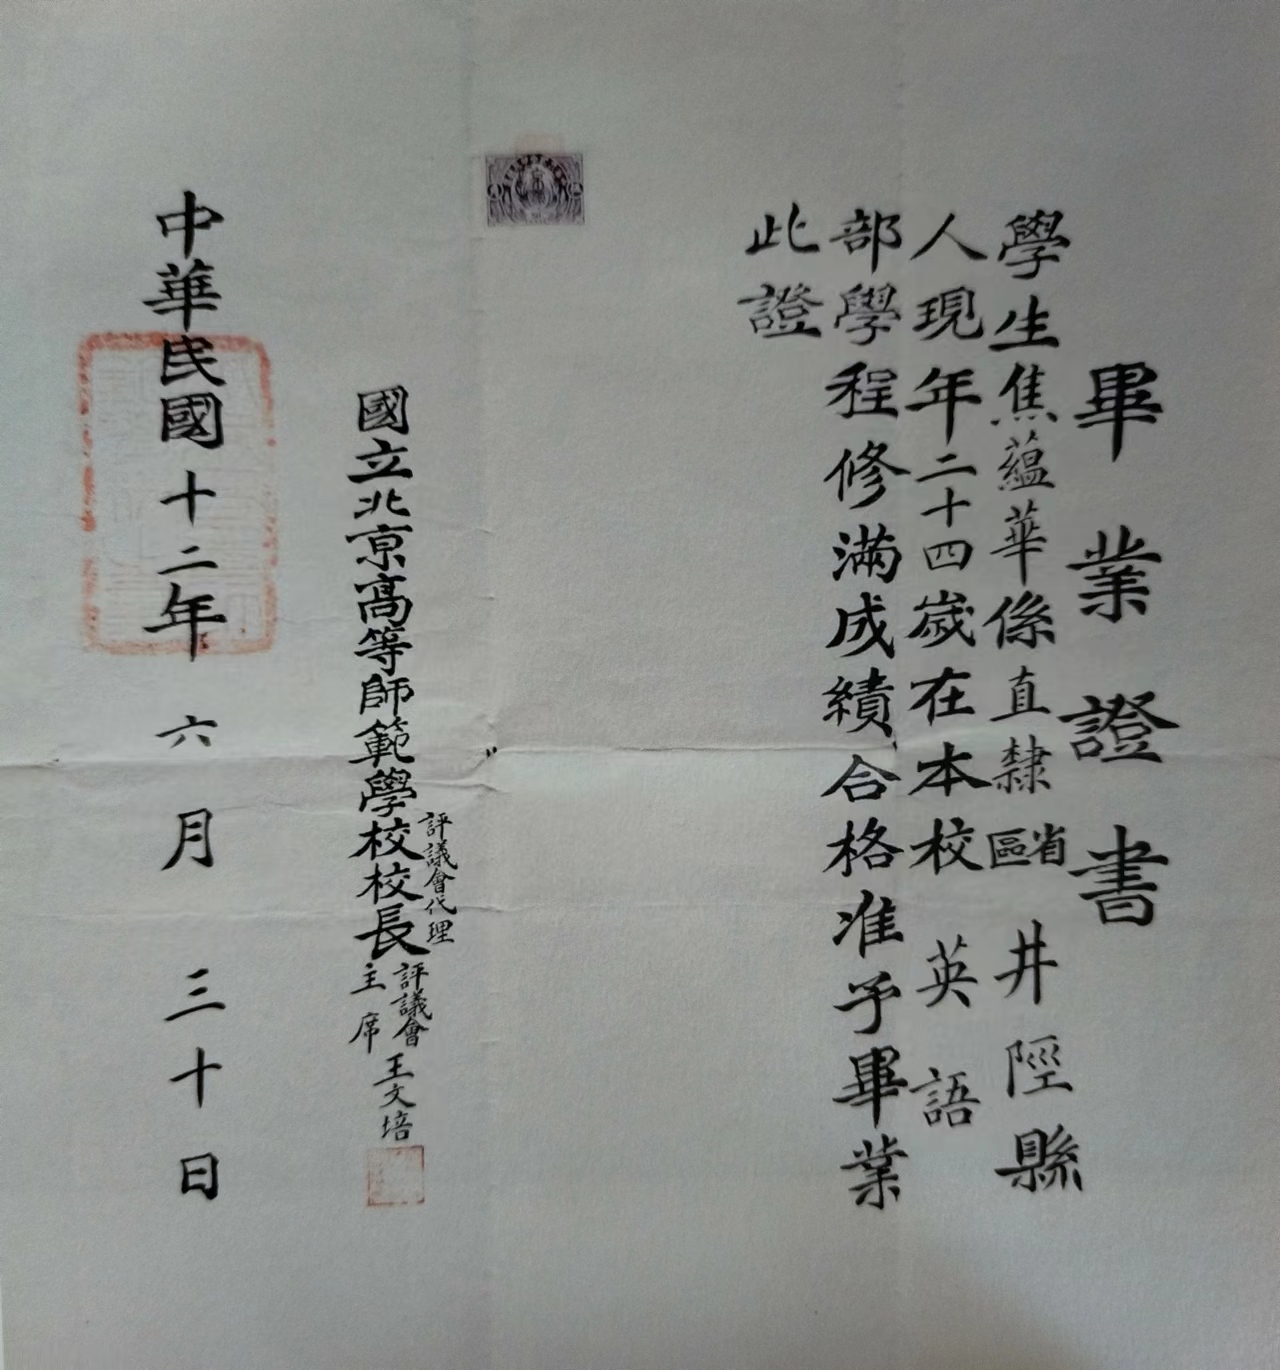 畢業證書
學生焦蘊華係直隸省區井陘縣
人現年二十四歲在本校英語
部學程修滿成績合格准予畢業
此證
國立北京高等師範學校校長
評議會代理
評議會
主席
王文培
中華民國十二年六月三十日